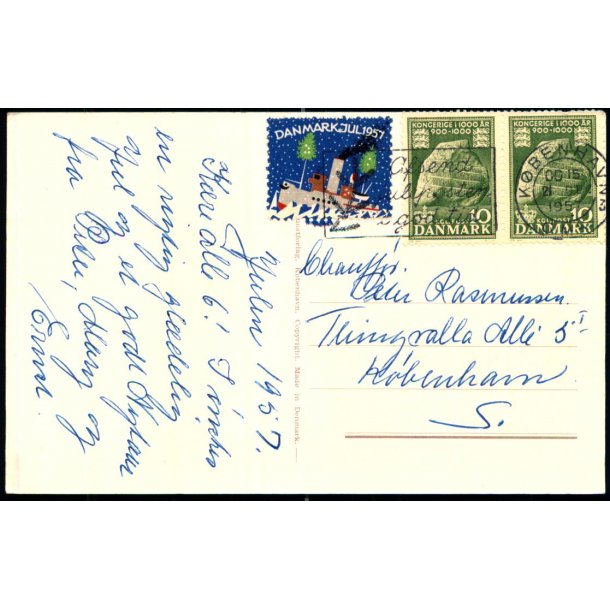 DANMARK.JUL 1957
KONGERIGE I 1000 ÅR
900-1000
10
DANMARK
KONGERIGE I 1000 ÅR
900-1000
10
DANMARK
Afsend
Juleposten
i god tid
KØBENHAVN
Julen 1957.
Kære alle 6! I ønskes
en rigtig glædelig
Jul og et godt Nytaar
fra
og
Chauffør.
Peter Rasmussen.
Tingvalla Allé 5 I
København
S.
København. Copyright. Made in Denmark.